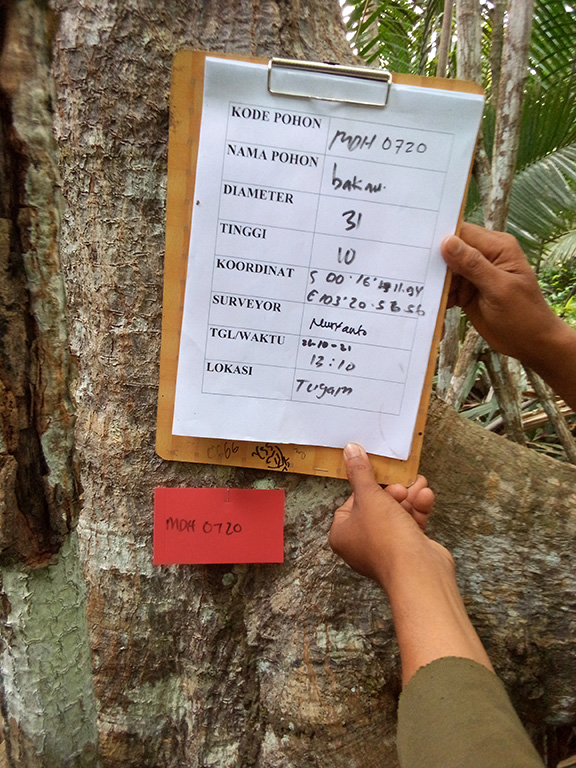 KODE POHON MDH 0720
NAMA POHON bakau.
DIAMETER 31
TINGGI 10
KOORDINAT S 00.16. 11.94
E 103.20.56.56
SURVEYOR Nuryanto
TGL/WAKTU 22-10-21
13:10
LOKASI Tugam
MDH 0720